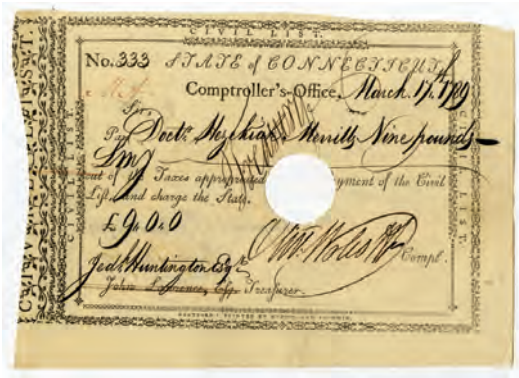 CIVIL LIST.
No. 333 STATE of CONNECTICUT,
Comptroller's-Office, March. 17. 1789
Sir,
Pay Doctr. Hezekiah Merrills Nine pounds
out of the Taxes appropriated yment of the Civil
List, and charge the State.
£9.0.0
Compt.
Jedh. Huntington Esqr.
John Lawrence, Esq. Treasurer.
CIVIL LIST.
CIVIL LIST.